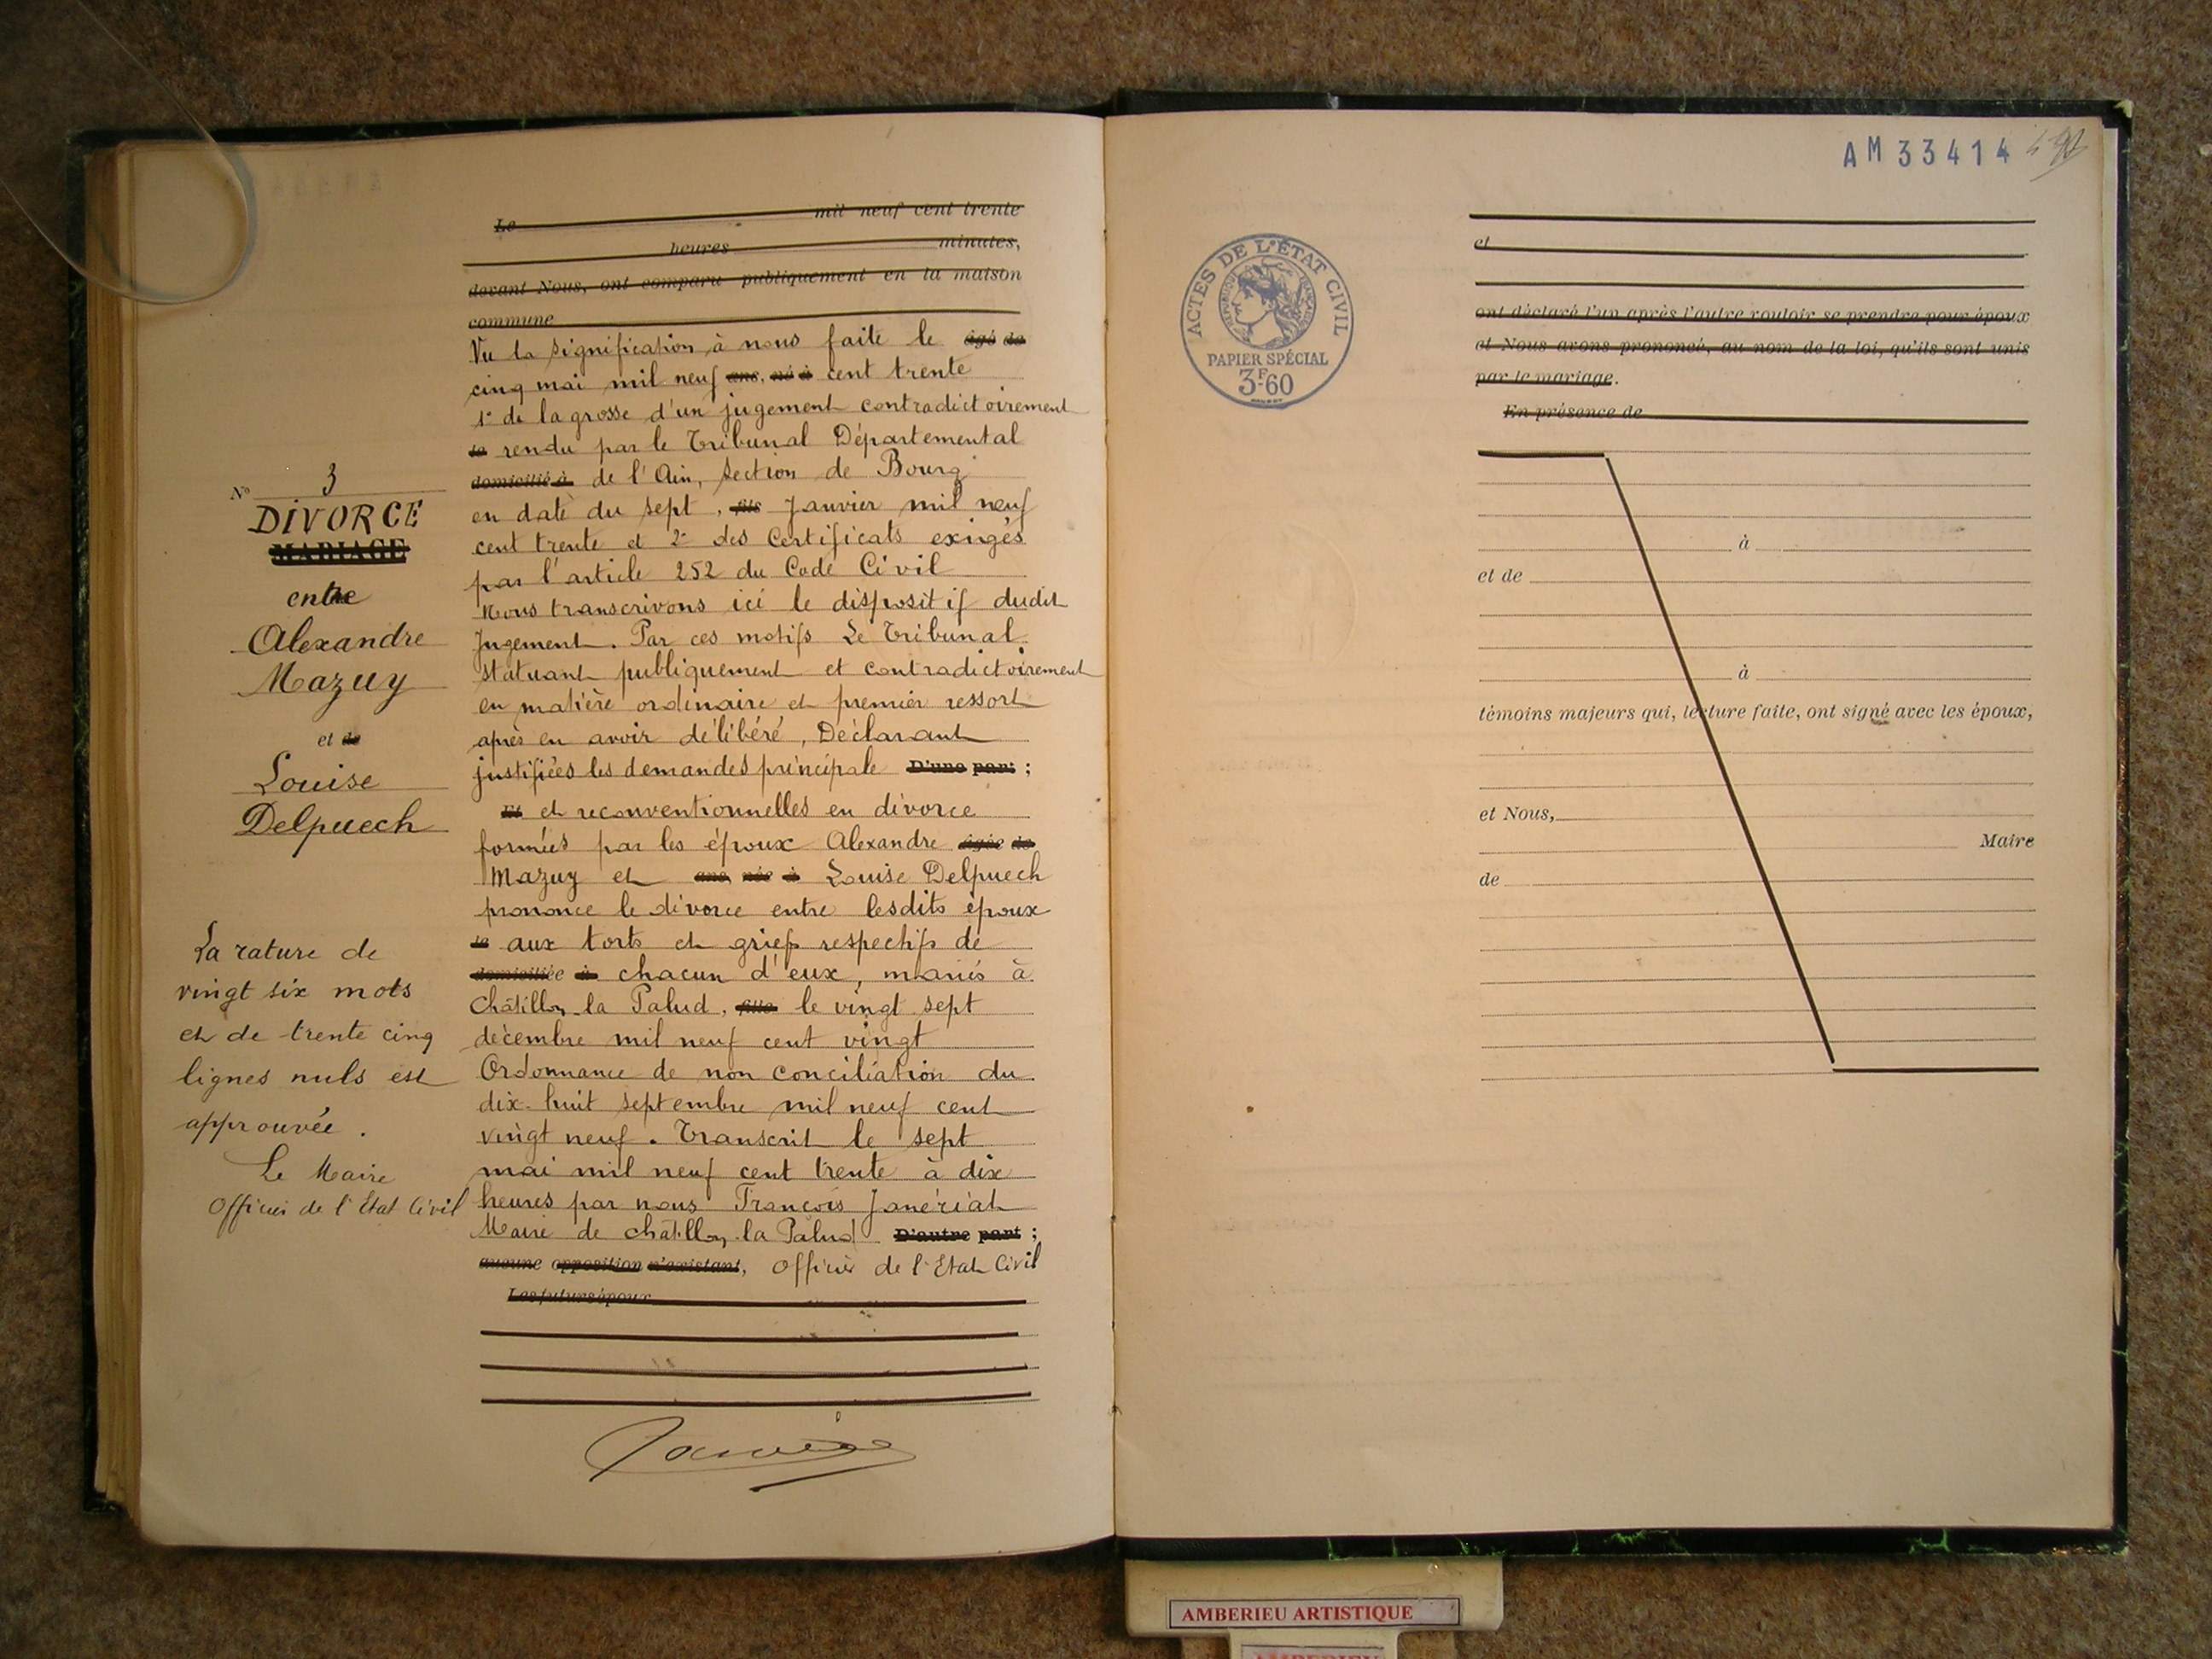 Le mil neuf cent trente
heures minutes,
devant Nous, ont comparu publiquement en la maison
commune
Vu la signification à nous faite le âgé de
cinq mai mil neuf ans, né à cent trente
1° de la grosse d'un jugement contradictoirement
le rendu par le Tribunal Départemental
domicilié à de l'Ain, section de Bourg
en date du sept, fils Janvier mil neuf
cent trente et 2° des Certificats exigés
par l'article 252 du Code Civil
Nous transcrivons ici le dispositif dudit
Jugement. Par ces motifs Le Tribunal
statuant publiquement et contradictoirement
en matière ordinaire et premier ressort
après en avoir délibéré, Déclarant
justifiées les demandes principale D'une part ;
Et et reconventionnelles en divorce
formées par les époux Alexandre âgée de
Mazuy et ans, née à Louise Delpuech
prononce le divorce entre lesdits époux
le aux torts et griefs respectifs de
domiciliée à chacun d'eux, mariés à
Châtillon la Palud, fille le vingt sept
décembre mil neuf cent vingt
Ordonnance de non conciliation du
dix-huit septembre mil neuf cent
vingt neuf. Transcrit le sept
mai mil neuf cent trente à dix
heures par nous François Janériat
Maire de châtillon la Palud D'autre part ;
aucune opposition n'existant, officier de l'Etat Civil
Les futurs époux
N° 3
DIVORCE
MARIAGE
entre
Alexandre
Mazuy
et de
Louise
Delpuech
La rature de
vingt six mots
et de trente cinq
lignes nuls est
approuvée.
Le Maire
Officier de l'Etat Civil
AM 33414
ACTES DE L'ÉTAT CIVIL
RÉPUBLIQUE FRANÇAISE
PAPIER SPÉCIAL
3F.60
et
ont déclaré l'un après l'autre vouloir se prendre pour époux
et Nous avons prononcé, au nom de la loi, qu'ils sont unis
par le mariage.
En présence de
à
et de
à
témoins majeurs qui, lecture faite, ont signé avec les époux,
et Nous,
Maire
de
AMBERIEU ARTISTIQUE
AMBERIEU